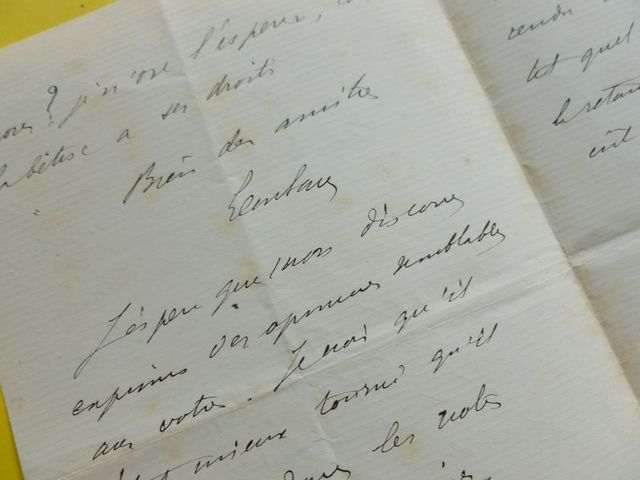 ? je n'ose l'espérer,
la bêtise a ses droits
Bien des amitiés
J'espère que mon discours
exprime des opinions semblables
aux votres. Je crois qu'il
mieux tourné qu'il
dans les notes
rendu
tot quel
le retour